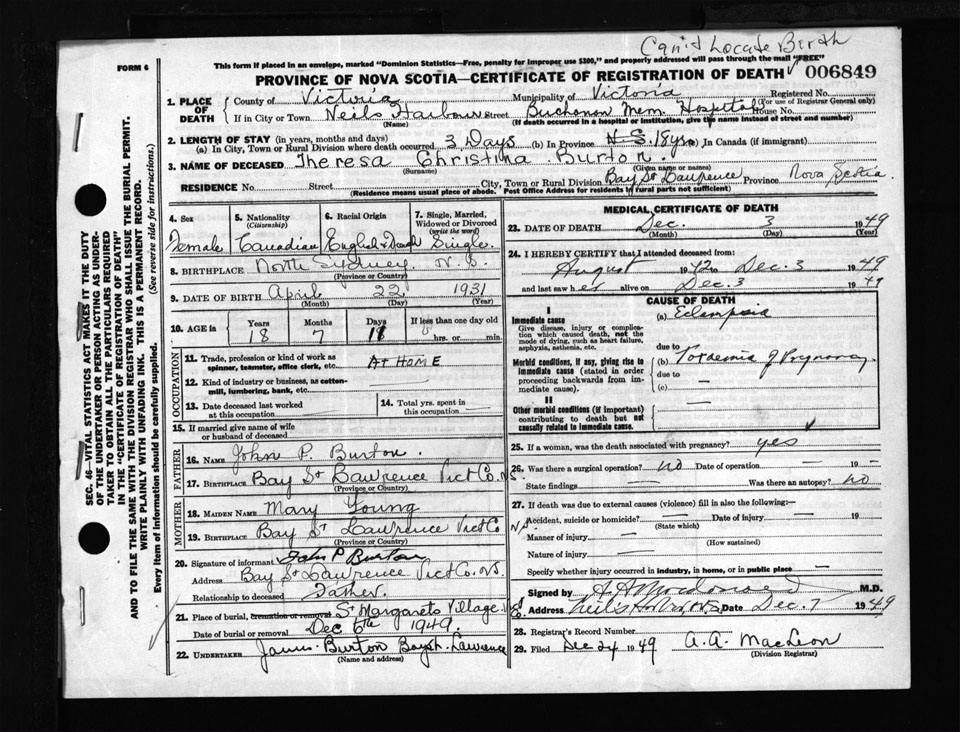 Can't Locate Birth
FORM 6
This form if placed in an envelope, marked "Dominion Statistics—Free, penalty for improper use $300," and properly addressed will pass through the mail "FREE"
PROVINCE OF NOVA SCOTIA—CERTIFICATE OF REGISTRATION OF DEATH 006849
1. PLACE OF DEATH County of Victoria Municipality of Victoria Registered No.
(For use of Registrar General only)
If in City or Town Neils Harbour Street Buchanan Mem. Hospital House No.
(Name) (If death occurred in a hospital or institution, give the name instead of street and number)
2. LENGTH OF STAY (in years, months and days)
(a) In City, Town or Rural Division where death occurred 3 Days (b) In Province N.S. 18yrs (c) In Canada (if immigrant)
3. NAME OF DECEASED Theresa Christina Burton.
(Surname) (Given name or names)
RESIDENCE No. Street City, Town or Rural Division Bay St Lawrence Province Nova Scotia
(Residence means usual place of abode. Post Office address of residents in rural parts not sufficient)
4. Sex
Female
5. Nationality
(Citizenship)
Canadian
6. Racial Origin
English &
7. Single, Married, Widowed or Divorced
(write the word)
Single.
8. BIRTHPLACE North Sydney. N.S.
(Province or Country)
9. DATE OF BIRTH April 22 1931
(Month) (Day) (Year)
10. AGE in Years Months Days If less than one day old
18 7 11 hrs. or min.
OCCUPATION
11. Trade, profession or kind of work as spinner, teamster, office clerk, etc. At HOME
12. Kind of industry or business, as cotton-mill, lumbering, bank, etc.
13. Date deceased last worked at this occupation
14. Total yrs. spent in this occupation
15. If married give name of wife or husband of deceased
FATHER
16. Name John P. Burton.
17. Birthplace Bay St Lawrence Vict Co. N.S.
(Province or Country)
MOTHER
18. Maiden Name Mary Young
19. Birthplace Bay St Lawrence Vict Co N.S.
(Province or Country)
20. Signature of informant John P Burton
Address Bay St Lawrence Vict Co. N.S.
Relationship to deceased Father.
21. Place of burial, cremation or removal St Margarets Village
Date of burial or removal Dec 6th 1949.
22. UNDERTAKER James Burton Bay St. Lawrence
(Name and address)
MEDICAL CERTIFICATE OF DEATH
23. DATE OF DEATH Dec. 3 1949
(Month) (Day) (Year)
24. I HEREBY CERTIFY that I attended deceased from:
August 1942 to Dec. 3 1949
and last saw her alive on Dec. 3 1949
CAUSE OF DEATH
I
Immediate cause
Give disease, injury or complication which caused death, not the mode of dying, such as heart failure, asphyxia, asthenia, etc.
(a) Eclampsia
due to
Morbid conditions, if any, giving rise to immediate cause (stated in order proceeding backwards from immediate cause).
(b) Toxaemia of Pregnancy
due to
(c) —
II
Other morbid conditions (if important) contributing to death but not causally related to immediate cause.
—
25. If a woman, was the death associated with pregnancy? yes
26. Was there a surgical operation? no Date of operation — 19 —
State findings — Was there an autopsy? No
27. If death was due to external causes (violence) fill in also the following:—
Accident, suicide or homicide? — Date of injury — 19
(State which)
Manner of injury —
(How sustained)
Nature of injury —
Specify whether injury occurred in industry, in home, or in public place —
Signed by M.D.
Address Neils Harbour, N.S. Date Dec. 7 1949
28. Registrar's Record Number
29. Filed Dec 24 1949 A. A. MacLeon
(Division Registrar)
SEC. 46—VITAL STATISTICS ACT MAKES IT THE DUTY OF THE UNDERTAKER OR PERSON ACTING AS UNDERTAKER TO OBTAIN ALL THE PARTICULARS REQUIRED IN THE "CERTIFICATE OF REGISTRATION OF DEATH"
AND TO FILE THE SAME WITH THE DIVISION REGISTRAR WHO SHALL ISSUE THE BURIAL PERMIT.
WRITE PLAINLY WITH UNFADING INK. THIS IS A PERMANENT RECORD.
Every item of Information should be carefully supplied. (See reverse side for instructions.)